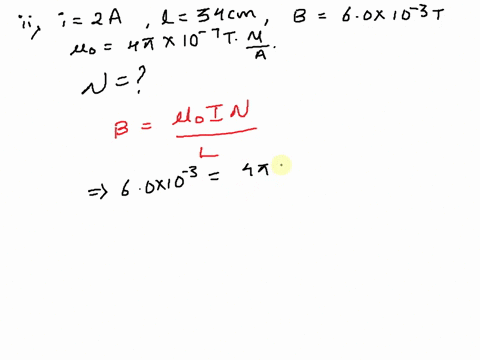 ii, i = 2A , l = 34cm, B = 6.0×10⁻³ T
μ₀ = 4π × 10⁻⁷ T. M/A.
N = ?
B = μ₀IN/L
=> 6.0×10⁻³ = 4π